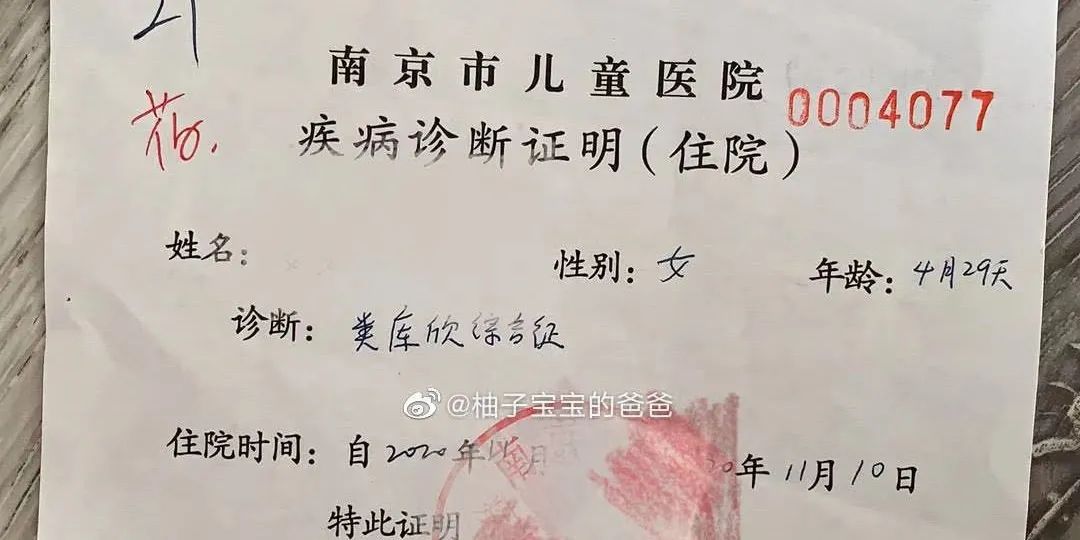 南京市儿童医院
0004077
疾病诊断证明(住院)
姓名:
性别:女
年龄:4月29天
诊断:类库欣综合征
@柚子宝宝的爸爸
住院时间:自2020年 月 20年11月10日
特此证明